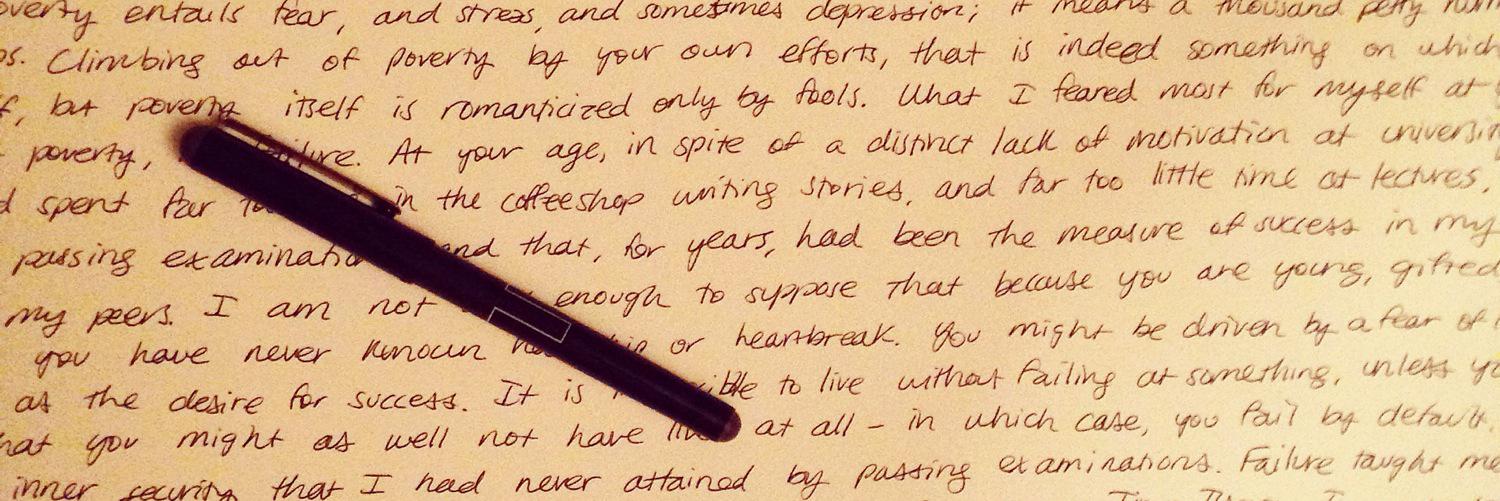 overty entails fear, and stress, and sometimes depression; it means a thousand petty hum
ps. Climbing out of poverty by your own efforts, that is indeed something on which
f, but poverty itself is romanticized only by fools. What I feared most for myself at
poverty, failure. At your age, in spite of a distinct lack of motivation at universit
d spent far in the coffeeshop writing stories, and far too little time at lectures,
passing examinatio and that, for years, had been the measure of success in my
my peers. I am not enough to suppose that because you are young, gifted
you have never known or heartbreak. You might be driven by a fear of
as the desire for success. It is to live without failing at something, unless yo
hat you might as well not have at all - in which case, you fail by default.
inner security that I had never attained by passing examinations. Failure taught me